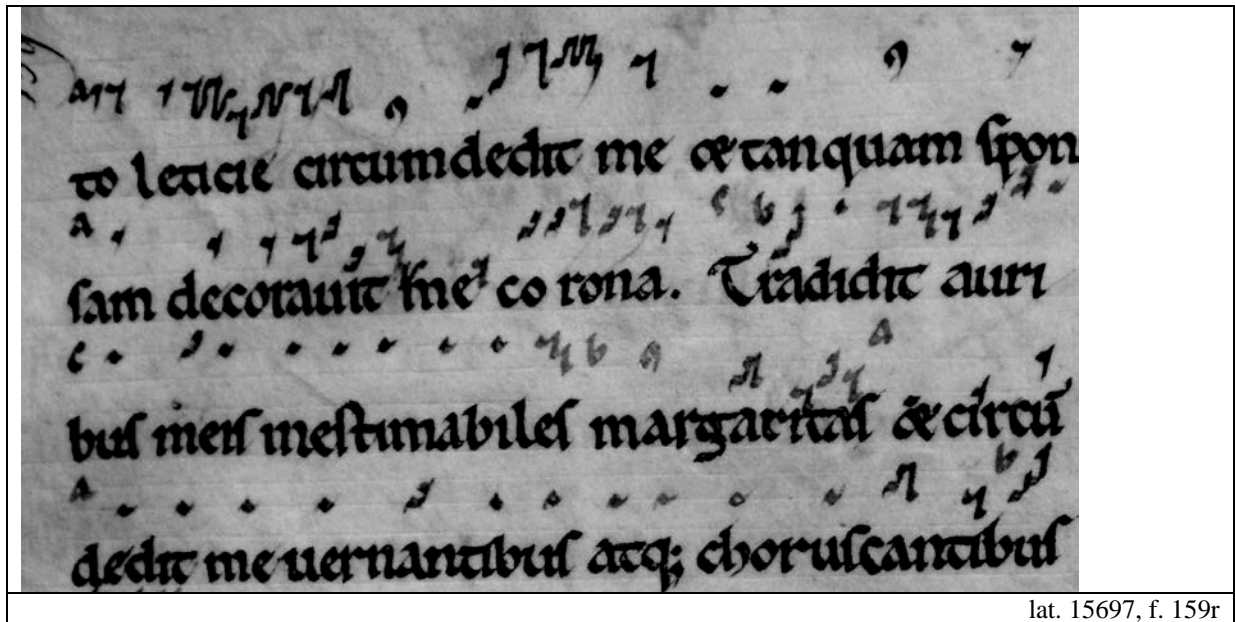 to leticie circumdedit me &tanquam spon
sam decorauit me co rona. Tradidit auri
bus meis inestimabiles margaritas & circū
dedit me uernantibus atq; choruscantibus
lat. 15697, f. 159r